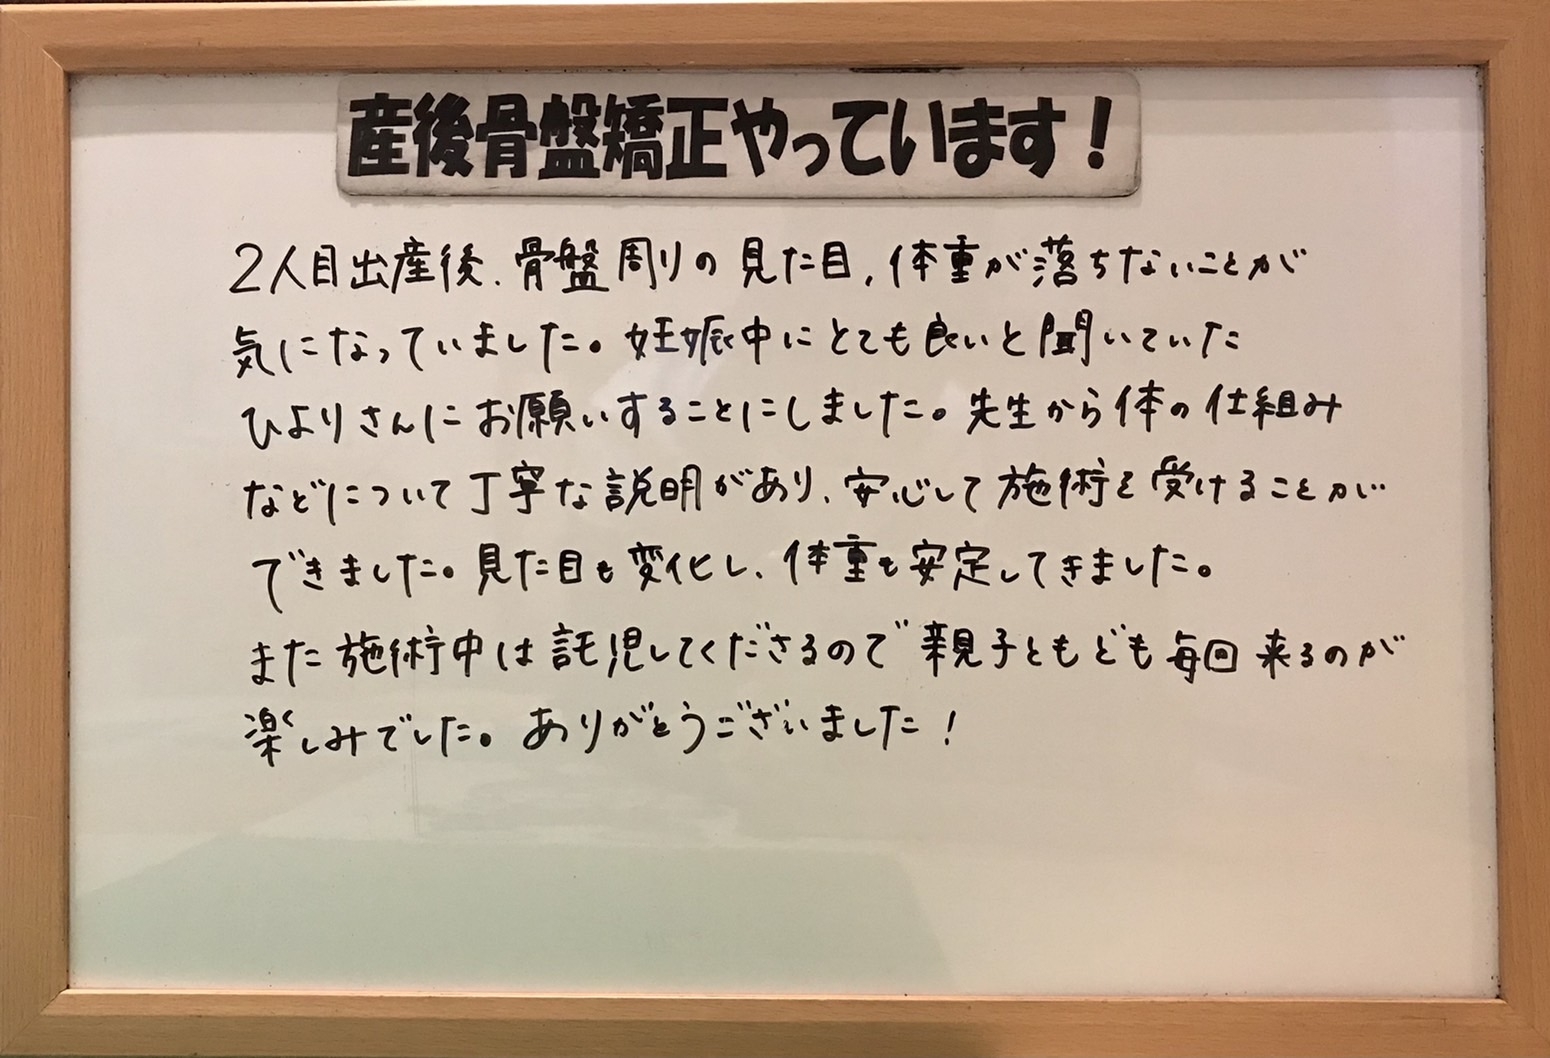 産後骨盤矯正やっています！
2人目出産後、骨盤周りの見た目、体重が落ちないことが
気になっていました。妊娠中にとても良いと聞いていた
ひよりさんにお願いすることにしました。先生から体の仕組み
などについて丁寧な説明があり、安心して施術を受けることが
できました。見た目も変化し、体重も安定してきました。
また施術中は託児してくださるので親子ともども毎回来るのが
楽しみでした。ありがとうございました！